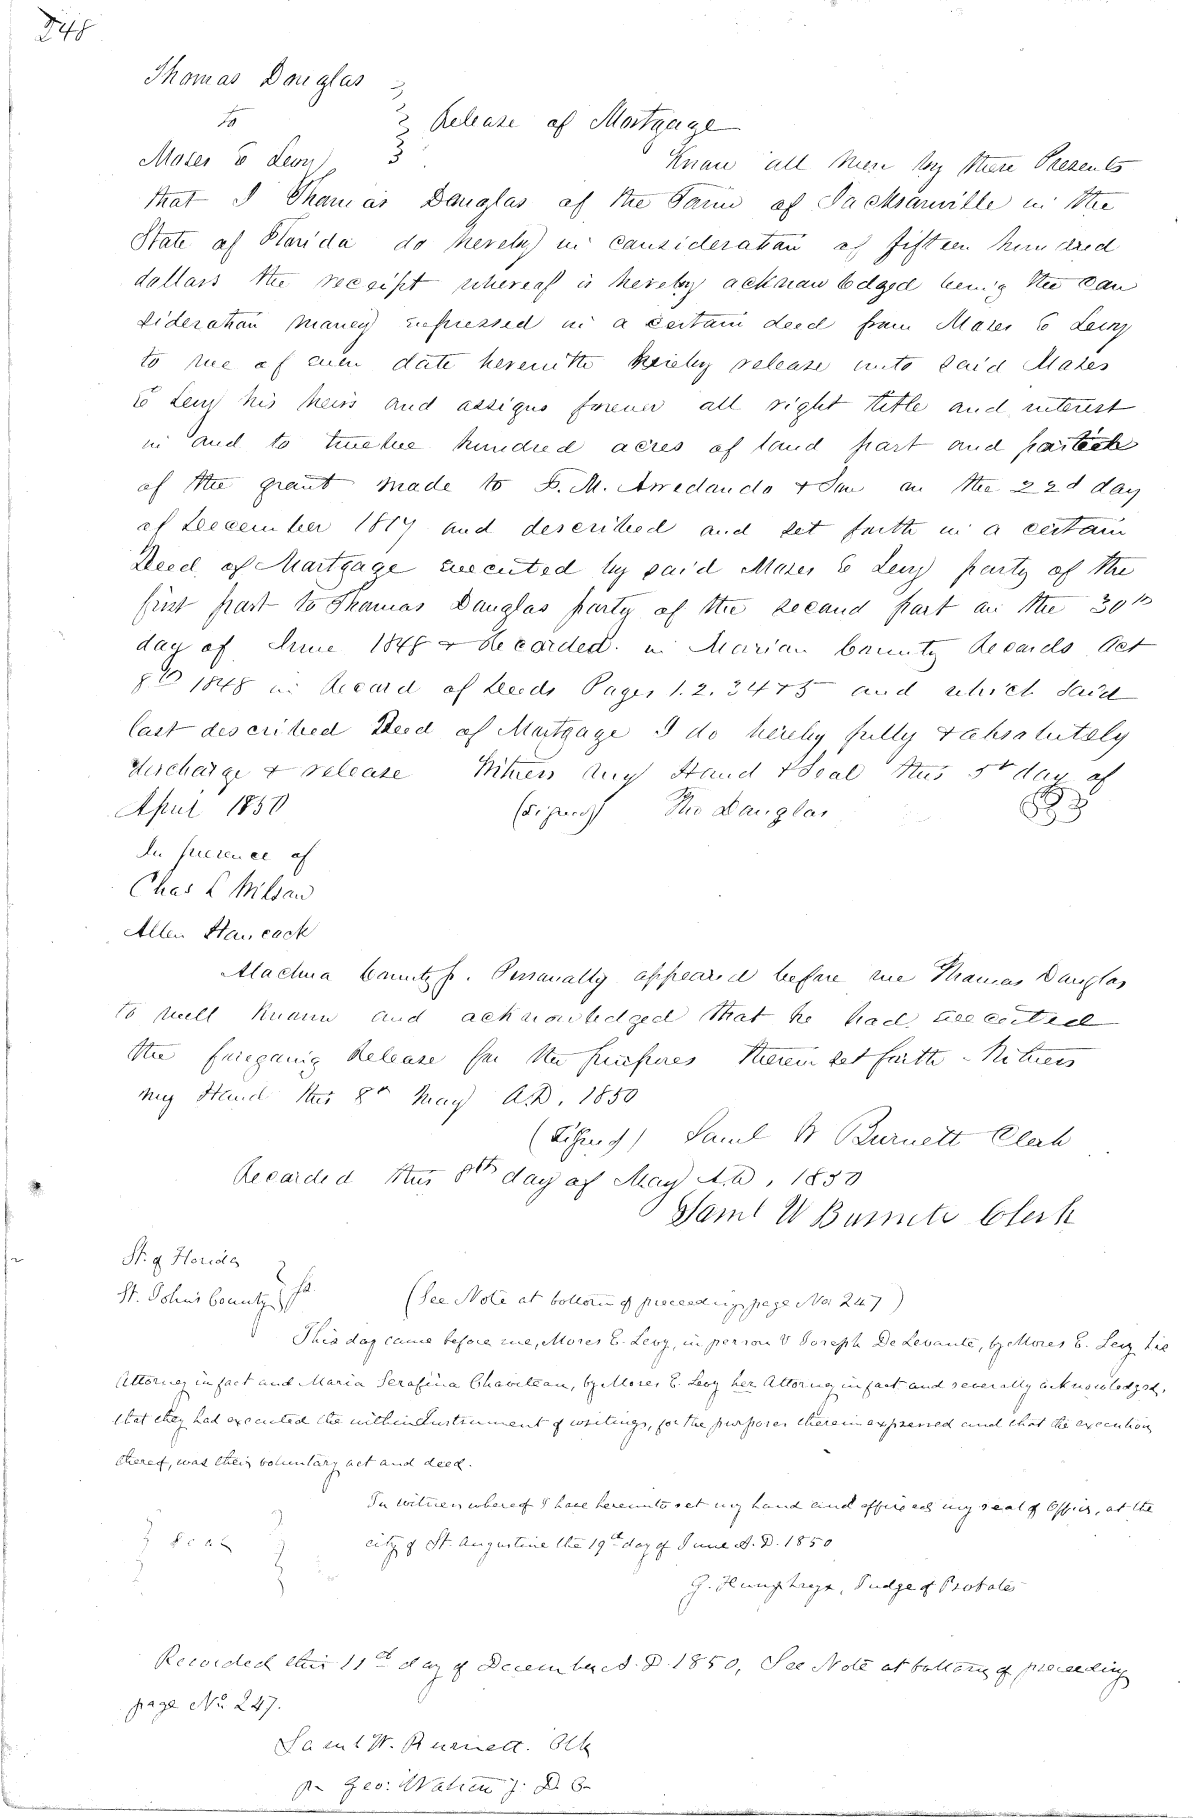 248
Thomas Douglas
to
Release of Mortgage
Moses E Levy
Know all men by these Presents
that I Thomas Douglas of the Town of Jacksonville in the
State of Florida do hereby in consideration of fifteen hundred
dollars the receipt whereof is hereby acknowledged being the con
sideration money expressed in a certain deed from Moses E Levy
to me of even date herewith hereby release unto said Moses
E Levy his heirs and assigns forever all right title and interest
in and to twelve hundred acres of land part and
of the grant made to F. M. Arredondo & Son on the 22d day
of December 1817 and described and set forth in a certain
Deed of Mortgage executed by said Moses E Levy party of the
first part to Thomas Douglas party of the second part on the 30th
day of June 1848 & Recorded in Marion County Records Oct
8th 1848 in Record of Deeds Pages 1. 2. 3 4 & 5 and which said
last described Deed of Mortgage I do hereby fully & absolutely
discharge & release Witness my Hand & Seal this 5th day of
April 1850 (Signed) Tho Douglas
In presence of
Chas L Wilson
Allen Hancock
Alachua County Personally appeared before me Thomas Douglas
to well known and acknowledged that he had executed
the foregoing Release for the purposes therein set forth - Witness
my Hand this 8th May A.D. 1850
(Signed) Saml W Burnett Clerk
Recorded this 8th day of May A.D. 1850
Saml W Burnett Clerk
St. of Florida
St. John's County
(See Note at bottom of preceeding page No. 247)
This day came before me, Moses E. Levy, in person & Joseph De Levante, by Moses E. Levy his
Attorney in fact and Maria Serafina Chaviteau, by Moses E. Levy her Attorney in fact and severally acknowledged,
that they had executed the within Instrument of writings, for the purposes therein expressed and that the execution
thereof, was their voluntary act and deed.
In witness whereof I have hereunto set my hand and affixed my seal of Office, at the
Seal
city of St. Augustine the 19th day of June A. D. 1850
G. Humphreys, Judge of Probates
Recorded this 11th day of December A. D. 1850, See Note at bottom of preceeding
page No. 247.
Saml W. Burnett. Clk
pr Geo: D. C.